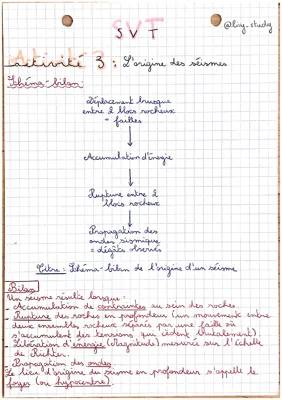 @lay_study
SVT
Activité 3 : L'origine des séismes
Schéma-bilan
Déplacement brusque
entre 2 blocs rocheux
= failles
Accumulation d'énergie
Rupture entre 2
blocs rocheux
Propagation des
ondes sismique
= dégâts causés
Titre : Schéma-bilan de l'origine d'un séisme
Bilan
Un séisme résulte lorsque :
- Accumulation de contraintes au sein des roches
- Rupture des roches en profondeur (un mouvement entre
deux ensembles rocheux séparés par une faille où
s'accumulent des tensions qui cèdent brutalement).
- Libération d'énergie (Magnitude) mesurés sur l'échelle
de Richter.
- Propagation des ondes
Le lieu d'origine du séisme en profondeur s'appelle le
foyer (ou hypocentre).